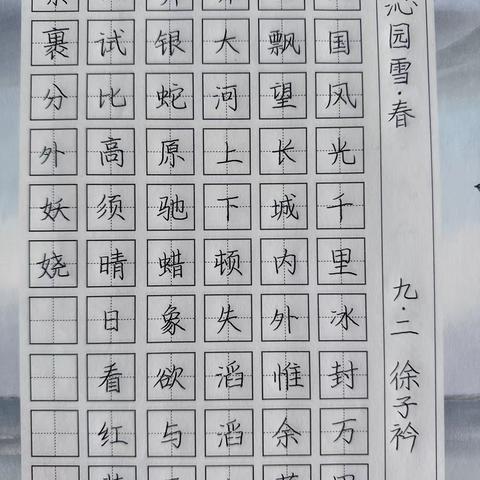 沁园雪·春 九·二 徐子衿
国风光千里冰封万里
飘望长城内外惟余莽
大河上下顿失滔滔
银蛇原驰蜡象欲与
试比高须晴日看红装
裹分外妖娆